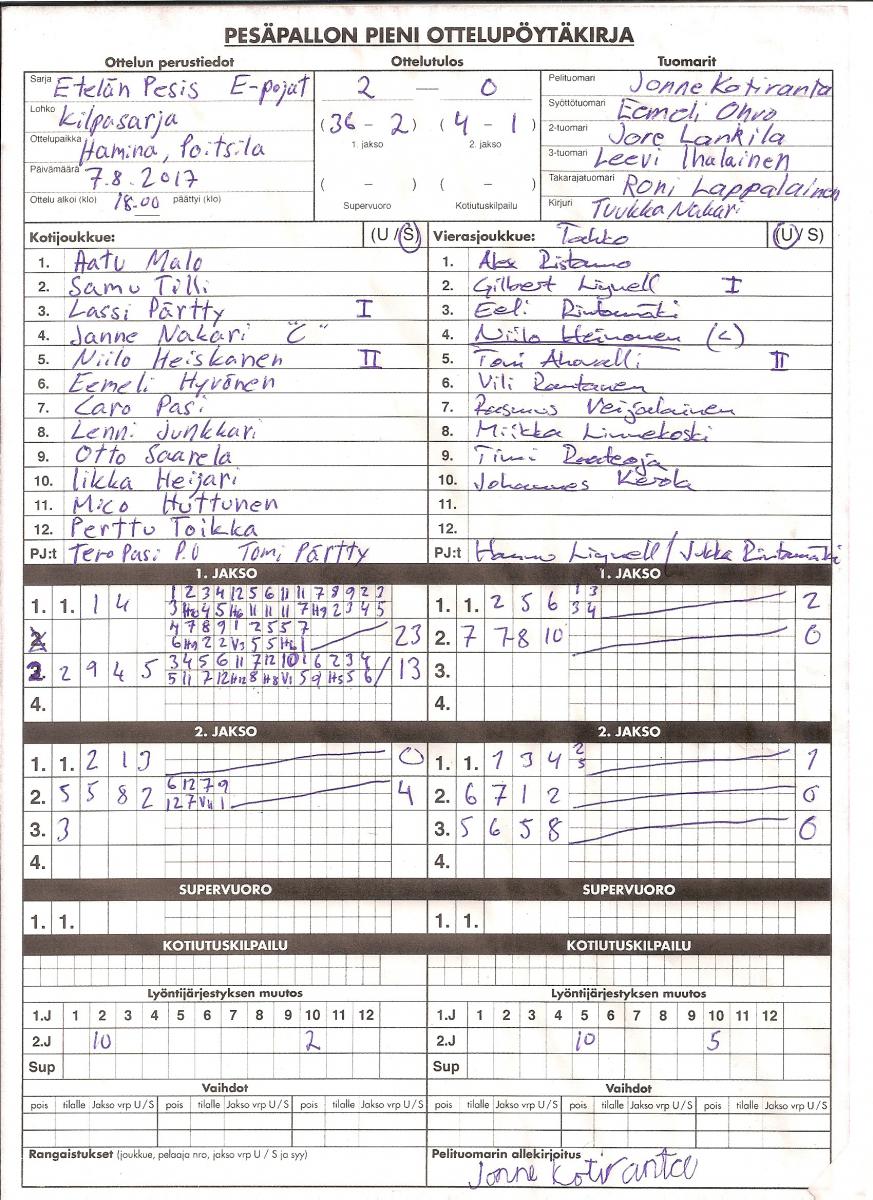 PESÄPALLON PIENI OTTELUPÖYTÄKIRJA
Ottelun perustiedot
Sarja Etelän Pesis E-pojat
Lohko Kilpasarja
Ottelupaikka Hamina, Poitsila
Päivämäärä 7.8.2017
Ottelu alkoi (klo) 18.00 päättyi (klo)
Ottelutulos
2 — 0
(36 - 2) (4 - 1)
1. jakso 2. jakso
( - ) ( - )
Supervuoro Kotiutuskilpailu
Tuomarit
Pelituomari Jonne Kotiranta
Syöttötuomari Eemeli Ohvo
2-tuomari Jore Lankila
3-tuomari Leevi Ihalainen
Takarajatuomari Roni Lappalainen
Kirjuri Tuukka Nakari
Kotijoukkue: (U / S)
1. Aatu Malo
2. Samu Tilli
3. Lassi Pärtty I
4. Janne Nakari "C"
5. Niilo Heiskanen II
6. Eemeli Hyvönen
7. Caro Pasi
8. Lenni Junkkari
9. Otto Saarela
10. Iikka Heijari
11. Mico Huttunen
12. Perttu Toikka
PJ:t Tero Pasi P.U Tomi Pärtty
Vierasjoukkue: Tahko (U / S)
1. Alex Ristamo
2. Gilbert Lignell I
3. Eeli Rintamäki
4. Niilo Heinonen (C)
5. Tomi Ahovelli II
6. Vili Rantanen
7. Rasmus Veijalainen
8. Miikka Linnekoski
9. Timi Raateoja
10. Johannes Kerola
11.
12.
PJ:t Hannu Lignell / Jukka Rintamäki
1. JAKSO
1. 1. 1 4
1 2 3 4 12 5 6 11 11 7 8 9 2 3
3 H10 4 5 H6 11 11 11 7 H9 2 3 4 5
2.
4 7 8 9 1 2 5 5 7
6 H9 2 2 V3 5 5 H6 1 23
2. 2 9 4 5
3 4 5 6 11 7 12 10 1 6 2 3 4
5 11 7 12 H12 8 H8 V1 5 9 H5 5 6 / 13
4.
1. JAKSO
1. 1. 2 5 6
1 3
3 4 2
2. 7 7 8 10 0
3.
4.
2. JAKSO
1. 1. 2 1 3 0
2. 5 5 8 2
6 12 7 9
12 7 V11 1 4
3. 3
4.
2. JAKSO
1. 1. 1 3 4
2
5 1
2. 6 7 1 2 0
3. 5 6 5 8 0
4.
SUPERVUORO
1. 1.
SUPERVUORO
1. 1.
KOTIUTUSKILPAILU
KOTIUTUSKILPAILU
Lyöntijärjestyksen muutos
1.J 1 2 3 4 5 6 7 8 9 10 11 12
2.J 10 2
Sup
Lyöntijärjestyksen muutos
1.J 1 2 3 4 5 6 7 8 9 10 11 12
2.J 10 5
Sup
Vaihdot
pois tilalle Jakso vrp U / S pois tilalle Jakso vrp U / S pois tilalle Jakso vrp U / S
Vaihdot
pois tilalle Jakso vrp U / S pois tilalle Jakso vrp U / S pois tilalle Jakso vrp U / S
Rangaistukset (joukkue, pelaaja nro, jakso vrp U / S ja syy)
Pelituomarin allekirjoitus
Jonne Kotiranta